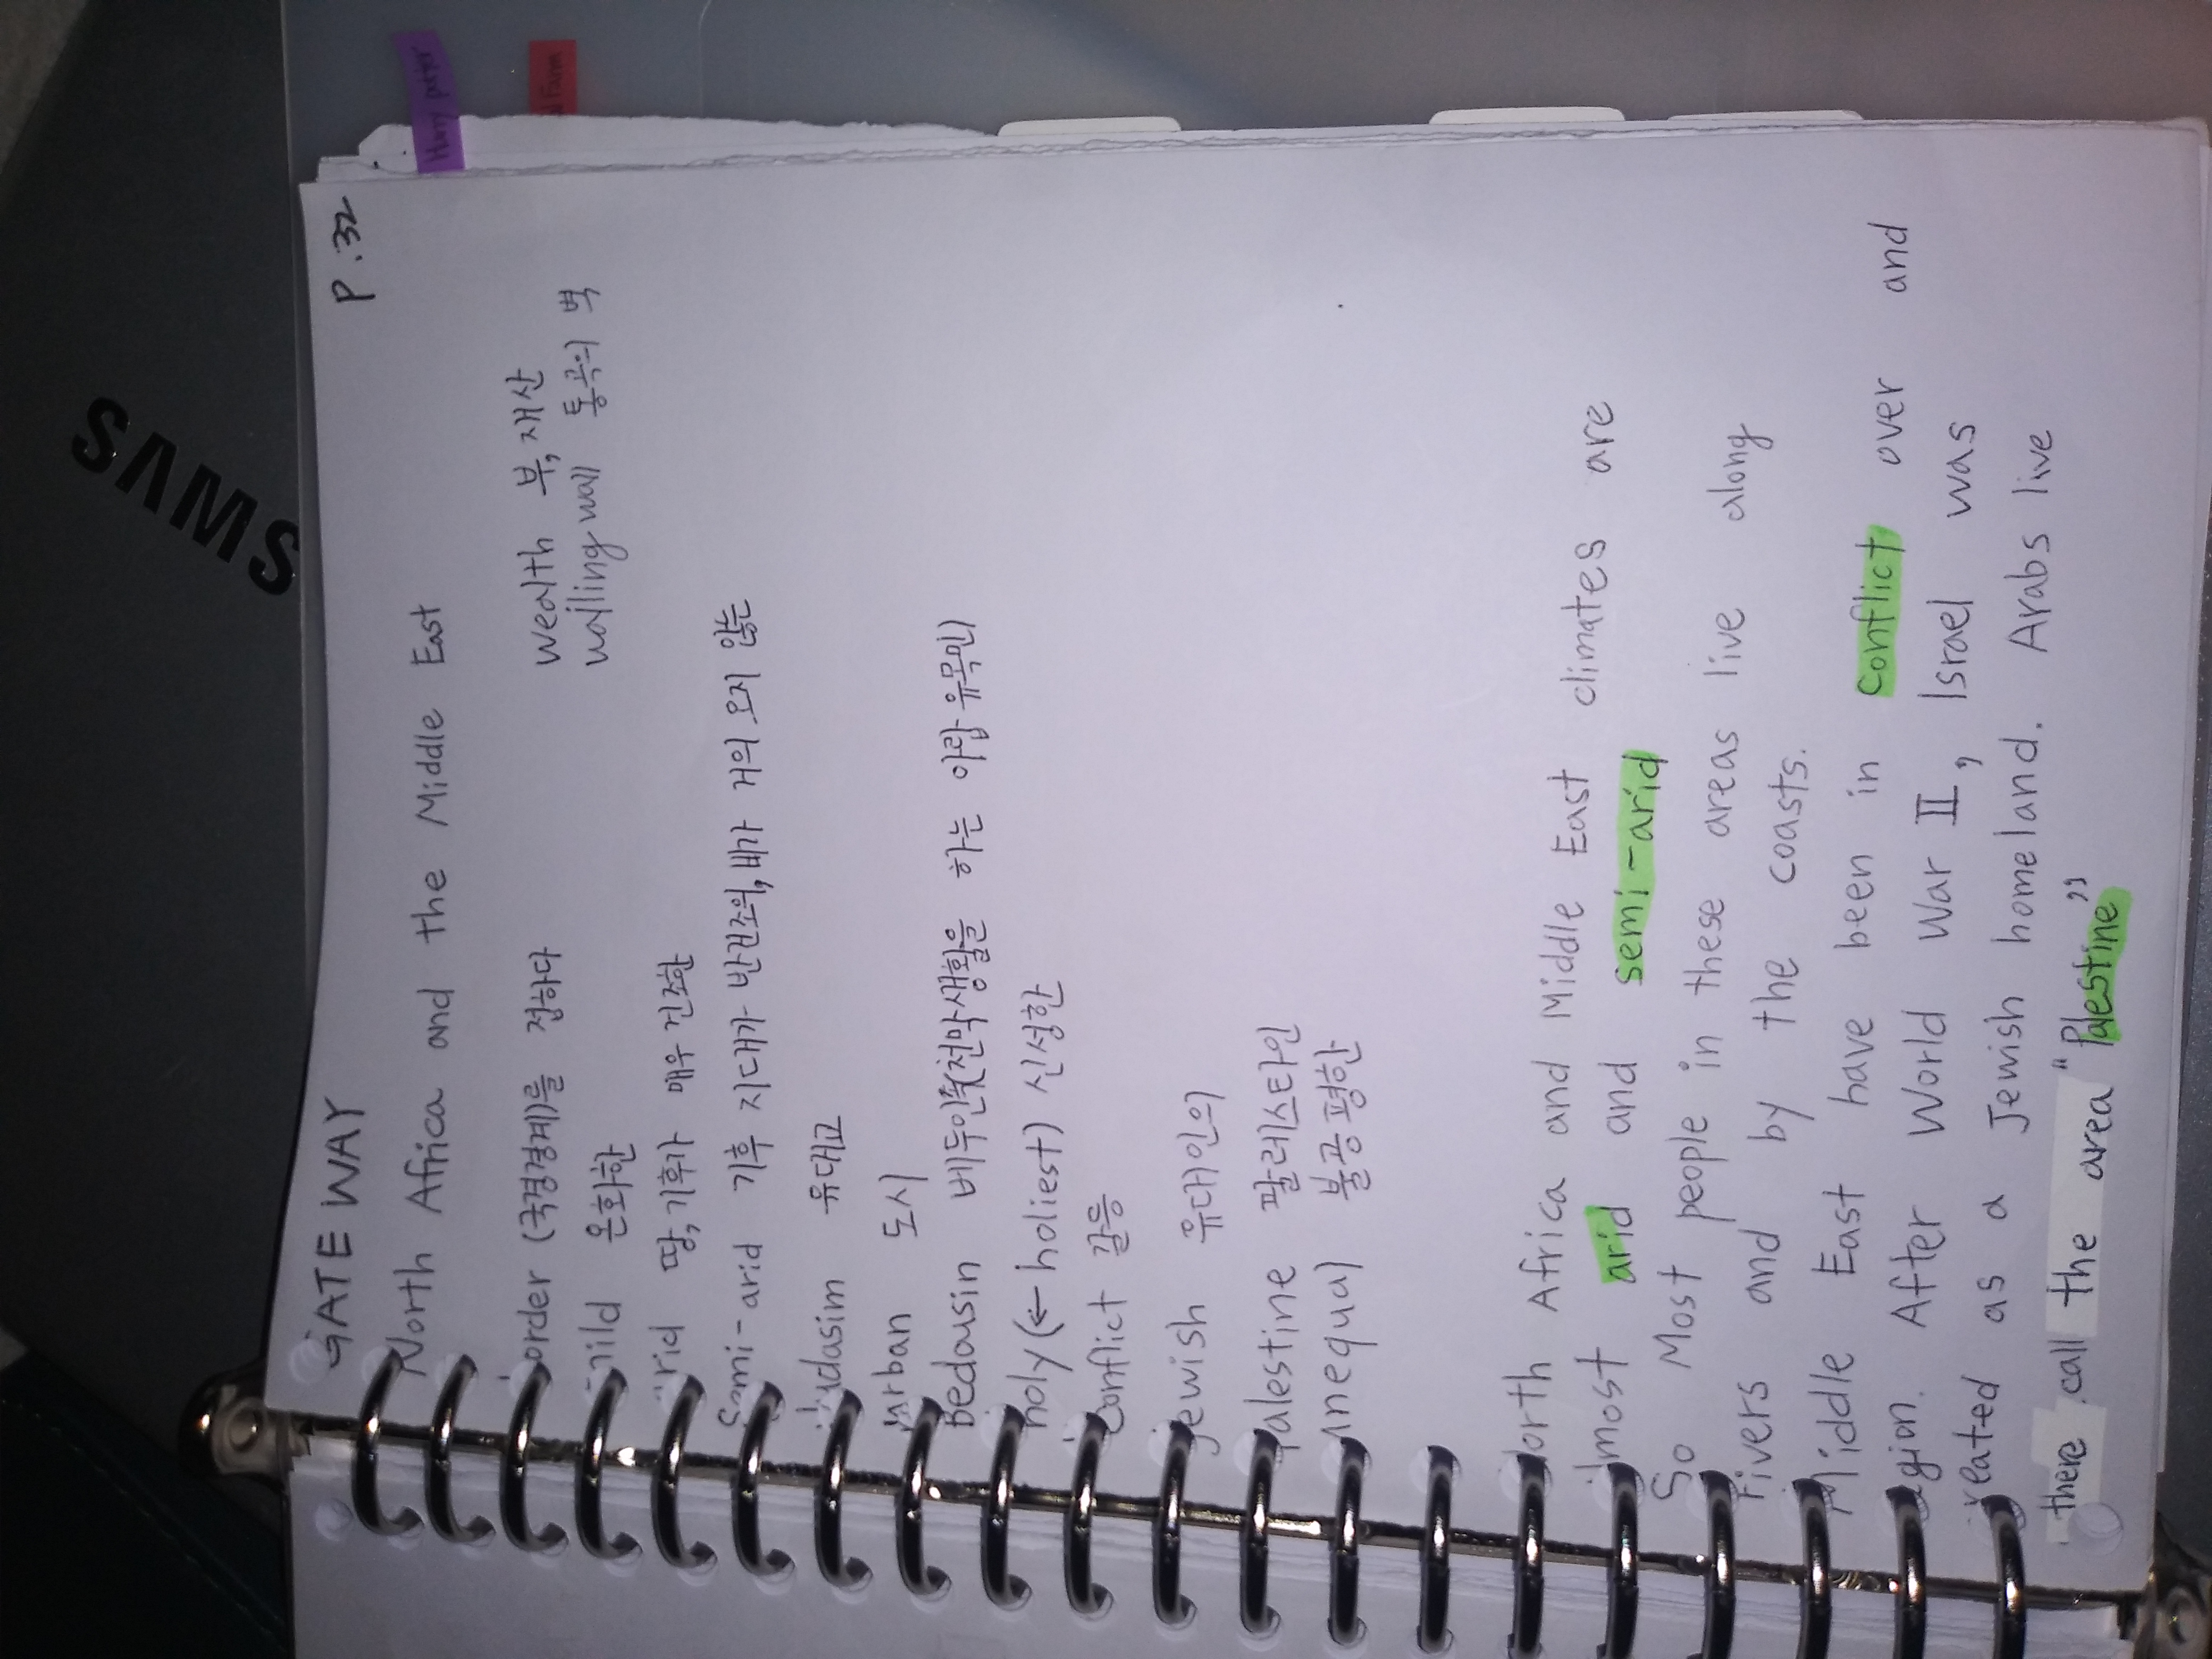 SAMS
Harry potter
Farm
P.32
GATE WAY
North Africa and the Middle East
order (국경경계)를 접하다
wealth 부, 재산
mild 온화한
wailing wall 통곡의 벽
arid 땅, 기후가 매우 건조한
Semi-arid 기후 지대가 반건조의, 비가 거의 오지 않는
Judasim 유대교
urban 도시
Bedousin 베두인족(천막생활을 하는 아랍 유목민)
holy (← holiest) 신성한
conflict 갈등
jewish 유대인의
Palestine 팔레스타인
unequal 불공평한
North Africa and Middle East climates are
almost arid and semi-arid
So Most people in these areas live along
rivers and by the coasts.
Middle East have been in conflict over and
region. After World War II, Israel was
reated as a Jewish homeland. Arabs live
there call the area "Palestine"